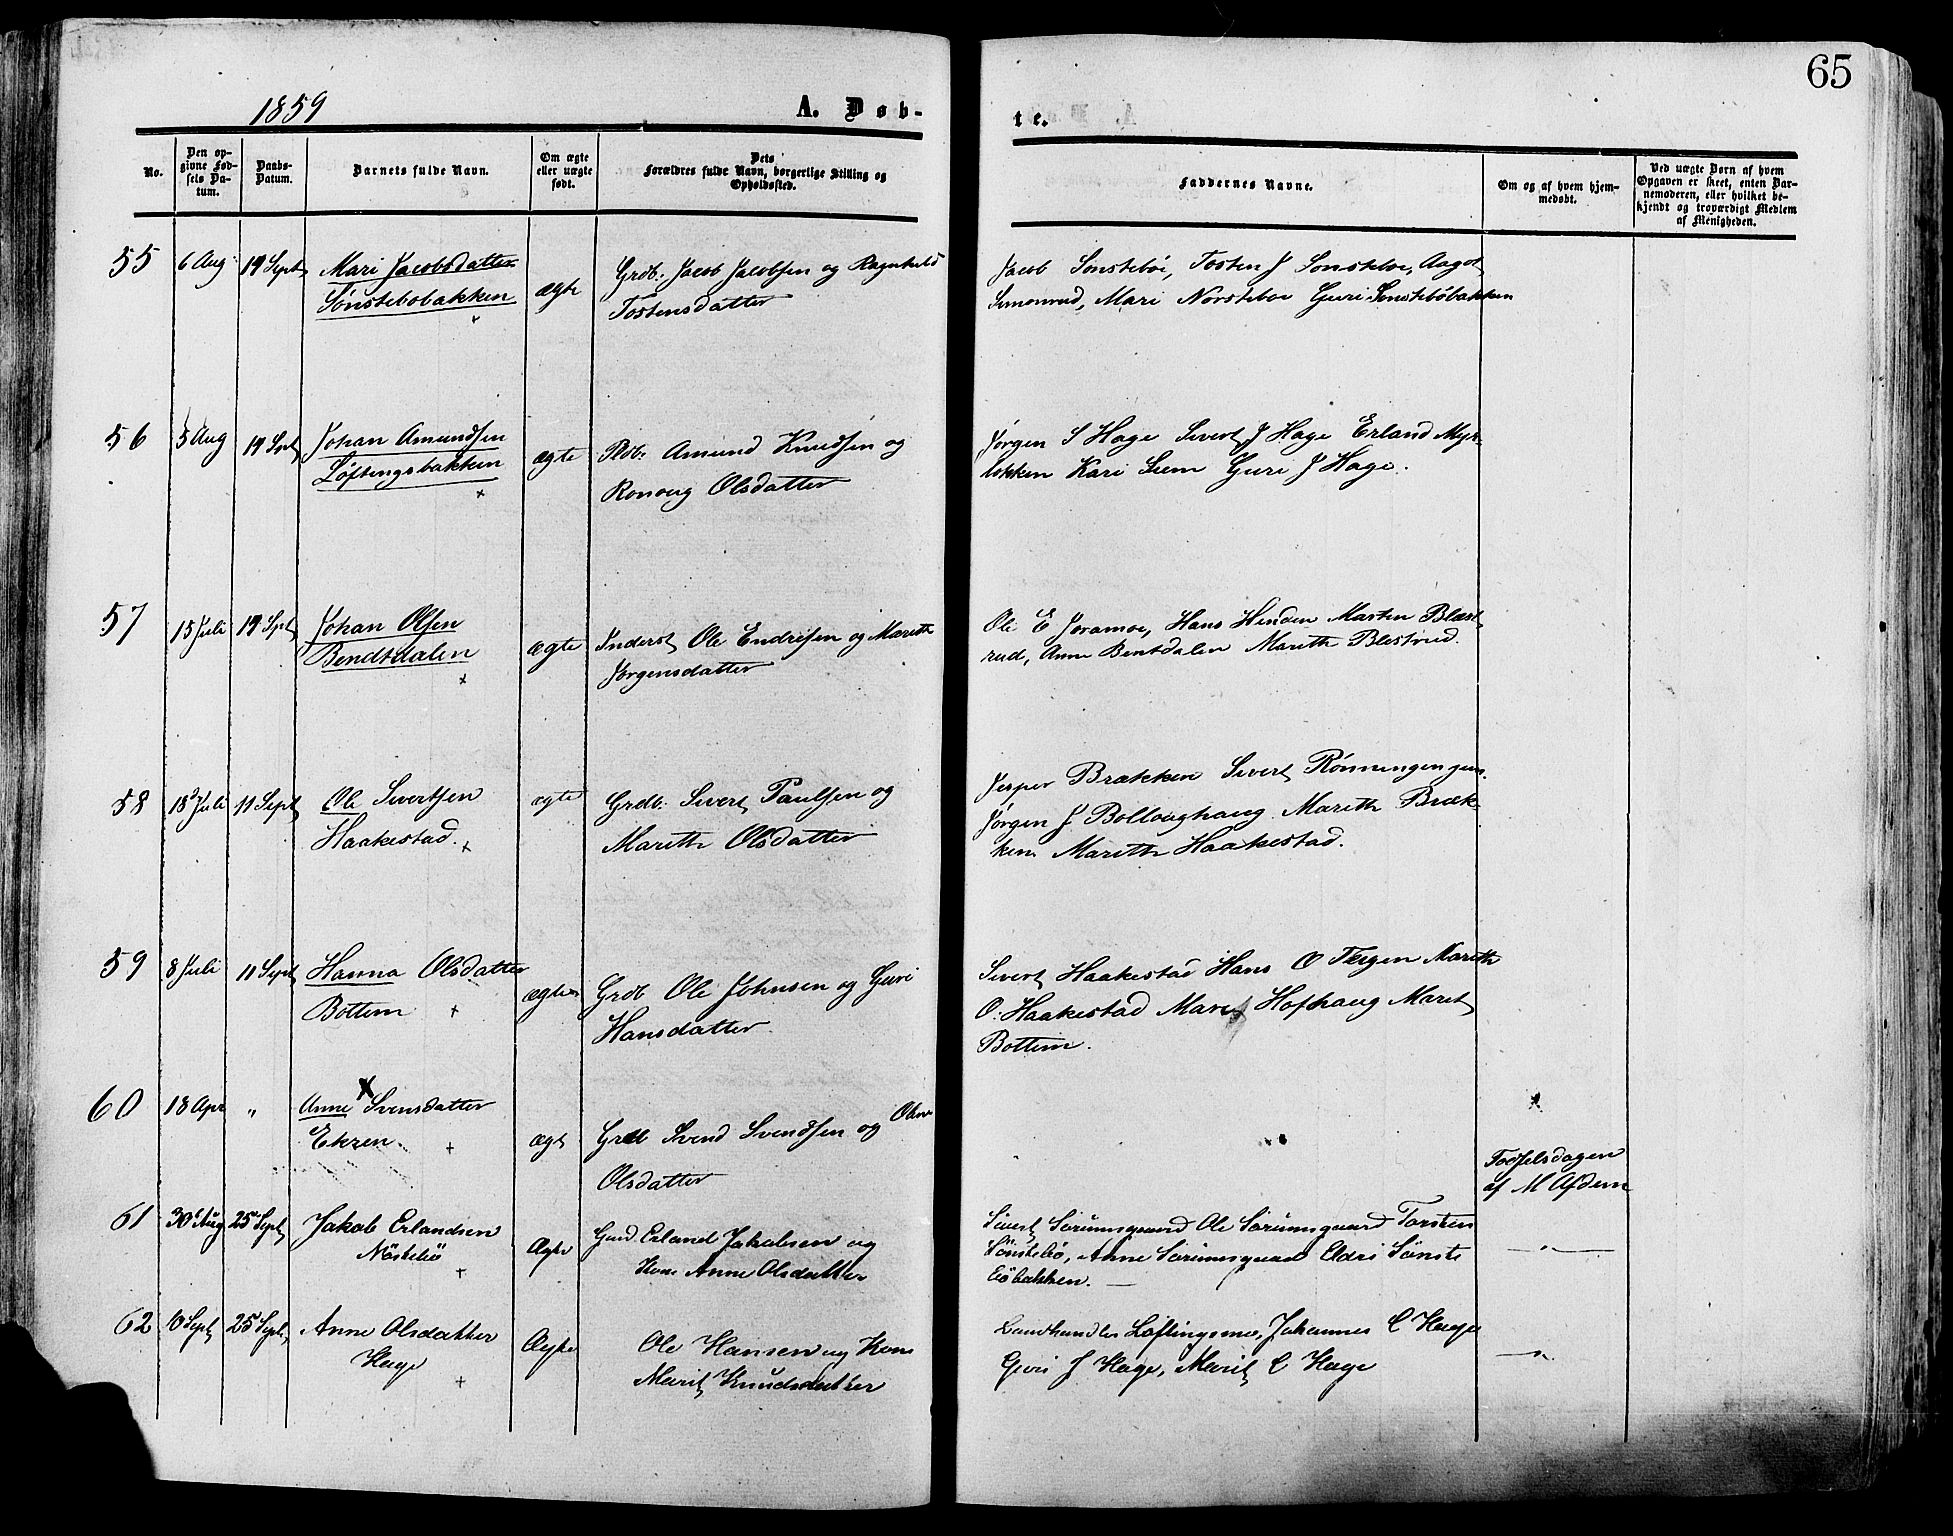 65
1859
A. Døb-
te.
No.
Den op-
givne Fød-
sels Da-
tum.
Daabs-
Datum.
Barnets fulde Navn.
Om ægte
eller uægte
født.
Dets
Forældres fulde Navn, borgerlige Stilling og
Opholdssted.
Faddernes Navne.
Om og af hvem hjem-
medøbt.
Ved uægte Børn af hvem
Opgaven er skeet, enten Bar-
nemoderen, eller hvilket be-
kjendt og troværdigt Medlem
af Menigheden.
55 6 Aug 19 Sept Mari Jacobsdatter
Sønstebobakken
ægte
Grdb: Jacob Jacobsen og Ragnhild
Tostensdatter
Jacob Sonstebøe, Tosten J Sonsteboe, Aagot
Simonrud, Mari Norsteboe Guri Sonstebøbakken
56 5 Aug 19 Sept Johan Amundsen
Løftingsbakken
ægte
Pldb: Amund Knudsen og
Ronoug Olsdatter
Jørgen S Hage Sivert J Hage Erland Myr
løkken Kari Siem Guri J Hage.
57 15 Juli 19 Spt Johan Olsen
Bendtdalen
ægte
Inderst Ole Endresen og Marith
Jørgensdatter
Ole E Joramoe, Hans Hinden Marten Blæst
rud, Anne Bentdalen Marith Blestrud.
58 18 Juli 11 Sept Ole Sivertsen
Haakestad.
ægte
Grdb: Sivert Paulsen og
Marith Olsdatter
Jesper Brækken Sivert Rønningengen.
Jørgen J Bollaughaug Marith Bræk-
ken Marith Haakestad.
59 8 Juli 11 Sept Hanna Olsdatter
Bottem
ægte
Grdb Ole Johnsen og Guri
Hansdatter
Sivert Haakestad Hans O Tesgen Marith
O. Haakestad Maret Hofhaug Maret
Bottem.
60 18 Apr " Anne Svensdatter
Ekren.
ægt
Grdb Svend Svendsen og
Olsdatter
Fodselsdagen
af M Afdem
61 30 Aug 25 Sept Jakob Erlandsen
Nöstebö
Ægte
Gaard Erland Jakobsen og
Kone Anne Olsdatter
Sivert Sørumsgaard Ole Sorumsgaard Torsten
Sönstebö, Anne Sørumsgaard Eldri Sönste
böbakken. —
— " —
62 10 Sept 25 Sept Anne Olsdatter
Hage
Ægte
Ole Hansen og Kone
Marit Knudsdatter
Landhandler Løftingsmo, Johannes C Hage
Guri J Hage, Marit C Hage
— "